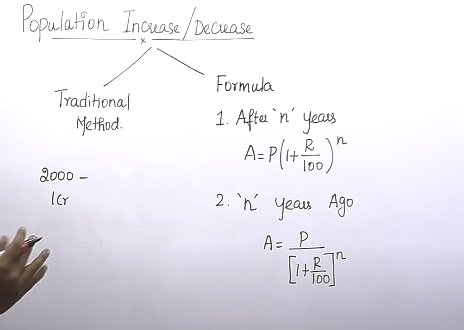 Population Increase/Decrease
Traditional
Method.
2000 -
1Cr
Formula
1. After 'n' years
A = P(1 + R/100)^n
2. 'n' years Ago
A = P/[1 + R/100]^n